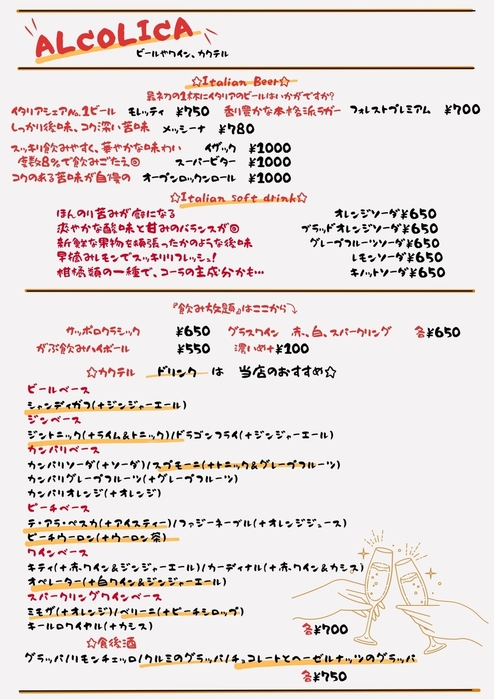 ALCOLICA
ビールやワイン、カクテル
☆Italian Beer☆
最初の1杯にイタリアのビールはいかがですか?
イタリアシェアNo.1ビール モレッティ ¥750 香り豊かな本格派ラガー フォレストプレミアム ¥700
しっかり後味、コク深い苦味 メッシーナ ¥780
スッキリ飲みやすく、華やかな味わい イザック ¥1000
度数8%で飲みごたえ◎ スーパービター ¥1000
コクのある苦味が自慢の オープンロックンロール ¥1000
☆Italian soft drink☆
ほんのり苦みが癖になる オレンジソーダ¥650
爽やかな酸味と甘みのバランスが◎ ブラッドオレンジソーダ¥650
新鮮な果物を頬張ったかのような後味 グレープフルーツソーダ¥650
早摘みレモンでスッキリリフレッシュ! レモンソーダ¥650
柑橘類の一種で、コーラの主成分かも… キノットソーダ¥650
『飲み放題』はここから
サッポロクラシック ¥650 グラスワイン 赤、白、スパークリング 各¥650
がぶ飲みハイボール ¥550 濃いめ+¥100
☆カクテル ドリンク は 当店のおすすめ☆
ビールベース
シャンディガフ(+ジンジャーエール)
ジンベース
ジントニック(+ライム&トニック)/ドラゴンフライ(+ジンジャーエール)
カンパリベース
カンパリソーダ(+ソーダ)/スプモーニ(+トニック&グレープフルーツ)
カンパリグレープフルーツ(+グレープフルーツ)
カンパリオレンジ(+オレンジ)
ピーチベース
テ・アラ・ペスカ(+アイスティー)/ファジーネーブル(+オレンジジュース)
ピーチウーロン(+ウーロン茶)
ワインベース
キティ(+赤ワイン&ジンジャーエール)/カーディナル(+赤ワイン&カシス)
オペレーター(+白ワイン&ジンジャーエール)
スパークリングワインベース
ミモザ(+オレンジ)/ベリーニ(+ピーチシロップ)
キールロワイヤル(+カシス) 各¥700
☆食後酒
グラッパ/リモンチェッロ/クルミのグラッパ/チョコレートとヘーゼルナッツのグラッパ
各¥750